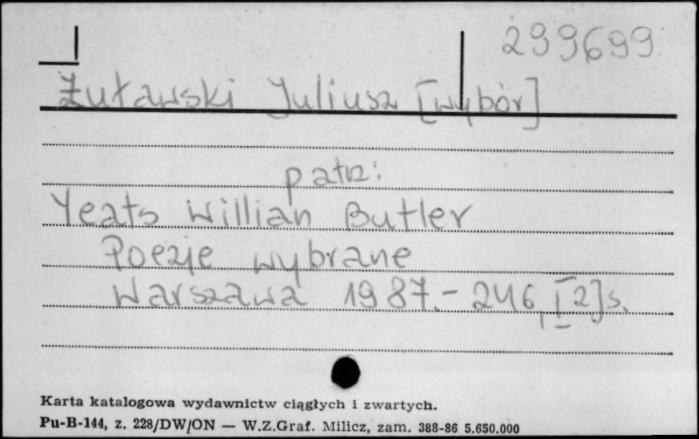 299699
Żuławski Juliusz [wybór]
patrz:
Yeats Willian Butler
Poezje wybrane
Warszawa 1987.- 246, [2] s.
Karta katalogowa wydawnictw ciągłych i zwartych.
Pu-B-144, z. 228/DW/ON — W.Z.Graf. Milicz, zam. 388-86 5.650.000